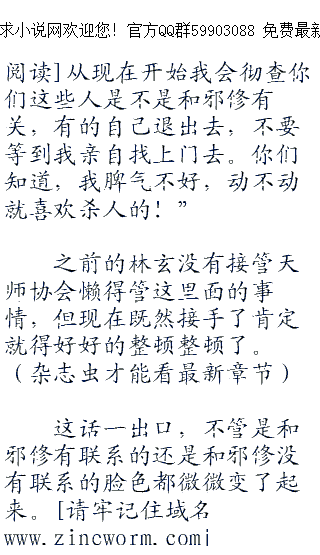 求小说网欢迎您！官方QQ群59903088 免费最新
阅读]从现在开始我会彻查你
们这些人是不是和邪修有
关，有的自己退出去，不要
等到我亲自找上门去。你们
知道，我脾气不好，动不动
就喜欢杀人的！”
之前的林玄没有接管天
师协会懒得管这里面的事
情，但现在既然接手了肯定
就得好好的整顿整顿了。
（杂志虫才能看最新章节）
这话一出口，不管是和
邪修有联系的还是和邪修没
有联系的脸色都微微变了起
来。[请牢记住域名
www.zincworm.com]